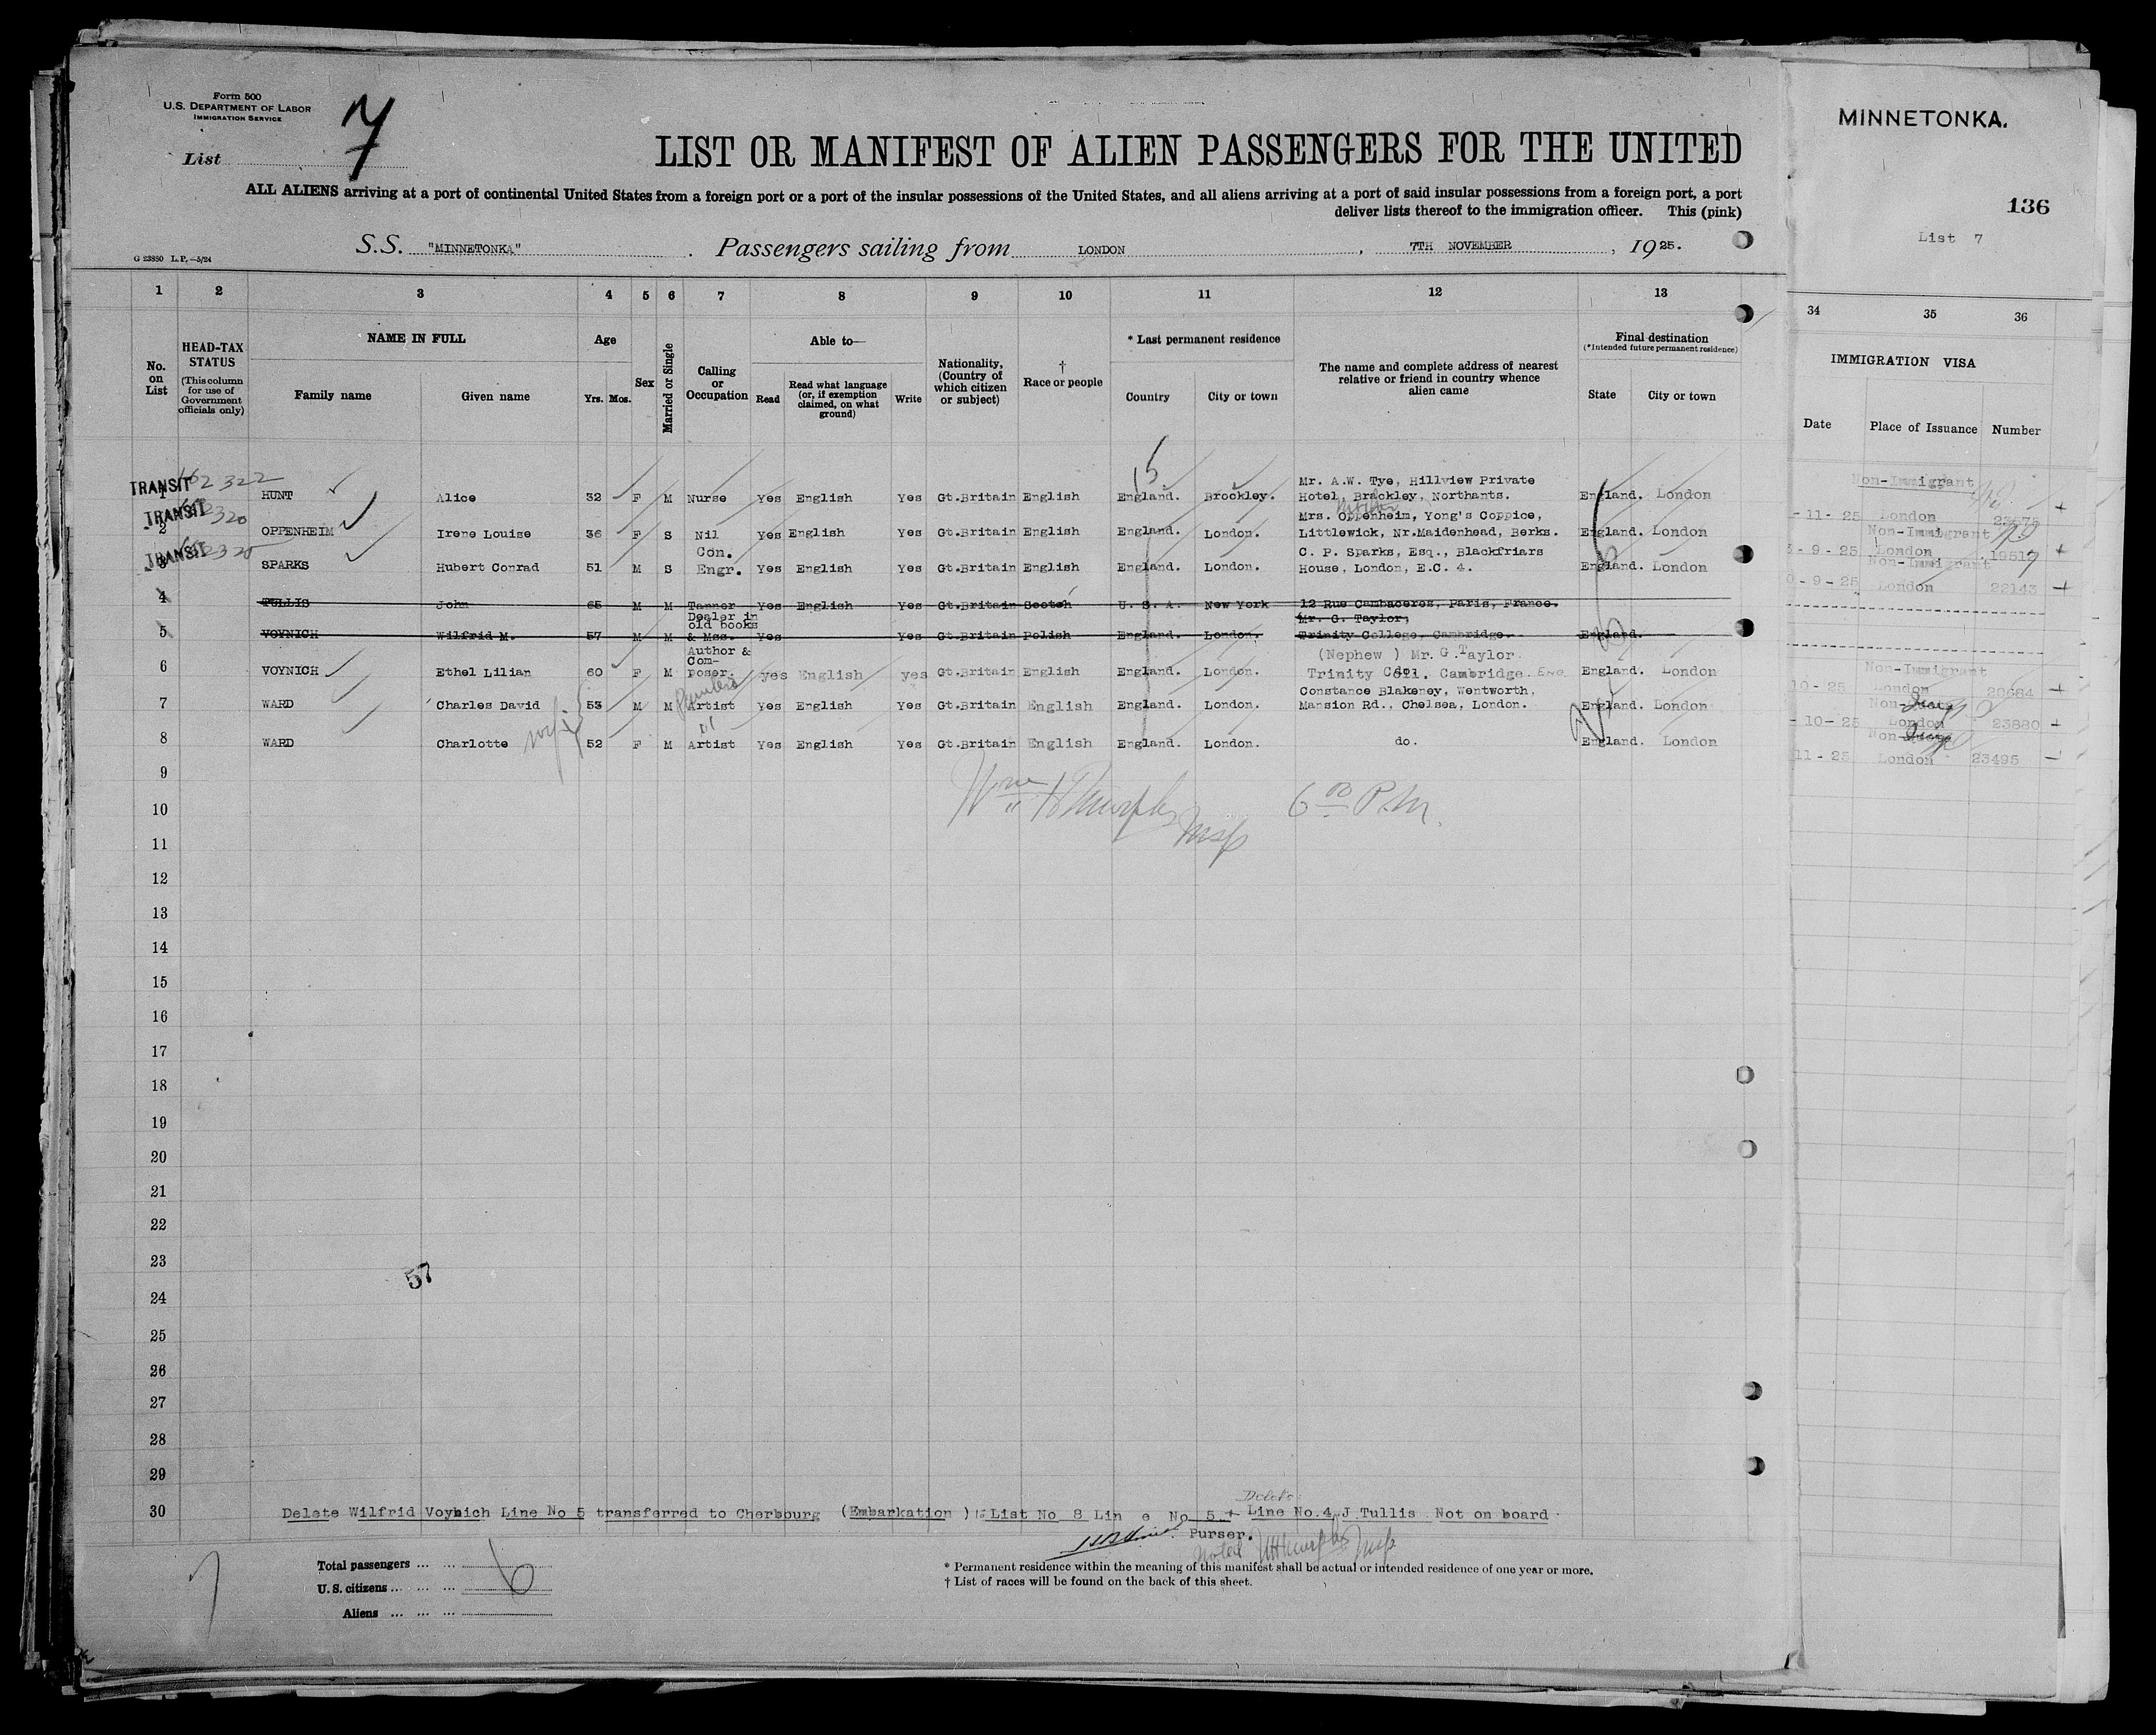 Form 500
U.S. DEPARTMENT OF LABOR
IMMIGRATION SERVICE
List 7
LIST OR MANIFEST OF ALIEN PASSENGERS FOR THE UNITED
ALL ALIENS arriving at a port of continental United States from a foreign port or a port of the insular possessions of the United States, and all aliens arriving at a port of said insular possessions from a foreign port, a port
deliver lists thereof to the immigration officer. This (pink)
S.S. "MINNETONKA" . Passengers sailing from LONDON , 7TH NOVEMBER , 1925.
G 23880 L.P.—5/24
MINNETONKA.
136
List 7
1 2 3 4 5 6 7 8 9 10 11 12 13
34 35 36
No. on List
HEAD-TAX STATUS
(This column for use of Government officials only)
NAME IN FULL
Family name
Given name
Age
Yrs. Mos.
Sex
Married or Single
Calling or Occupation
Able to—
Read
Read what language (or, if exemption claimed, on what ground)
Write
Nationality, (Country of which citizen or subject)
† Race or people
* Last permanent residence
Country
City or town
The name and complete address of nearest relative or friend in country whence alien came
Final destination
(*Intended future permanent residence)
State
City or town
IMMIGRATION VISA
Date
Place of Issuance
Number
TRANSIT
1 HUNT Alice 32 F M Nurse Yes English Yes Gt.Britain English England. Brockley. Mr. A.W. Tye, Hillview Private
Hotel, Brackley, Northants. England. London
Non-Immigrant
-11-25 London
TRANSIT
2 OPPENHEIM Irene Louise 36 F S Nil yes English Yes Gt.Britain English England. London. Mrs. Oppenheim, Yong's Coppice,
Littlewick, Nr.Maidenhead, Berks. England. London
Non-Immigrant
-9-25 London
TRANSIT
3 SPARKS Hubert Conrad 51 M S Con. Engr. Yes English Yes Gt.Britain English England. London. C. P. Sparks, Esq., Blackfriars
House, London, E.C. 4. England. London
Non-Immigrant
0-9-25 London 22143
4 TULLIS John 65 M M Tanner Yes English Yes Gt.Britain Scotch U. S. A. New York 12 Rue Cambaceres, Paris, France.
5 VOYNICH Wilfrid M. 57 M M Dealer in old books & Mss. Yes Yes Gt.Britain Polish England. London. Mr. G. Taylor,
Trinity College, Cambridge. England.
6 VOYNICH Ethel Lilian 60 F M Author & Com- poser. yes English yes Gt.Britain English England. London. (Nephew ) Mr. G. Taylor
Trinity Coll. Cambridge. England. London
Non-Immigrant
10-25 London 20684
7 WARD Charles David 53 M M Artist Yes English Yes Gt.Britain English England. London. Constance Blakeney, Wentworth,
Mansion Rd., Chelsea, London. England. London
-10-25 London 23880
8 WARD Charlotte wife 52 F M Artist Yes English Yes Gt.Britain English England. London. do. England. London
11-25 London 23495
9
10
Wm H Murphy 6 P.M.
11
12
13
14
15
16
17
18
19
20
21
22
23
57
24
25
26
27
28
29
Delete
30 Delete Wilfrid Voynich Line No 5 transferred to Cherbourg (Embarkation ) List No 8 Line No 5 + Line No.4 J Tullis Not on board
Purser.
Noted
Total passengers ... ...
U.S. citizens ... ... ... 6
Aliens ... ... ...
* Permanent residence within the meaning of this manifest shall be actual or intended residence of one year or more.
† List of races will be found on the back of this sheet.